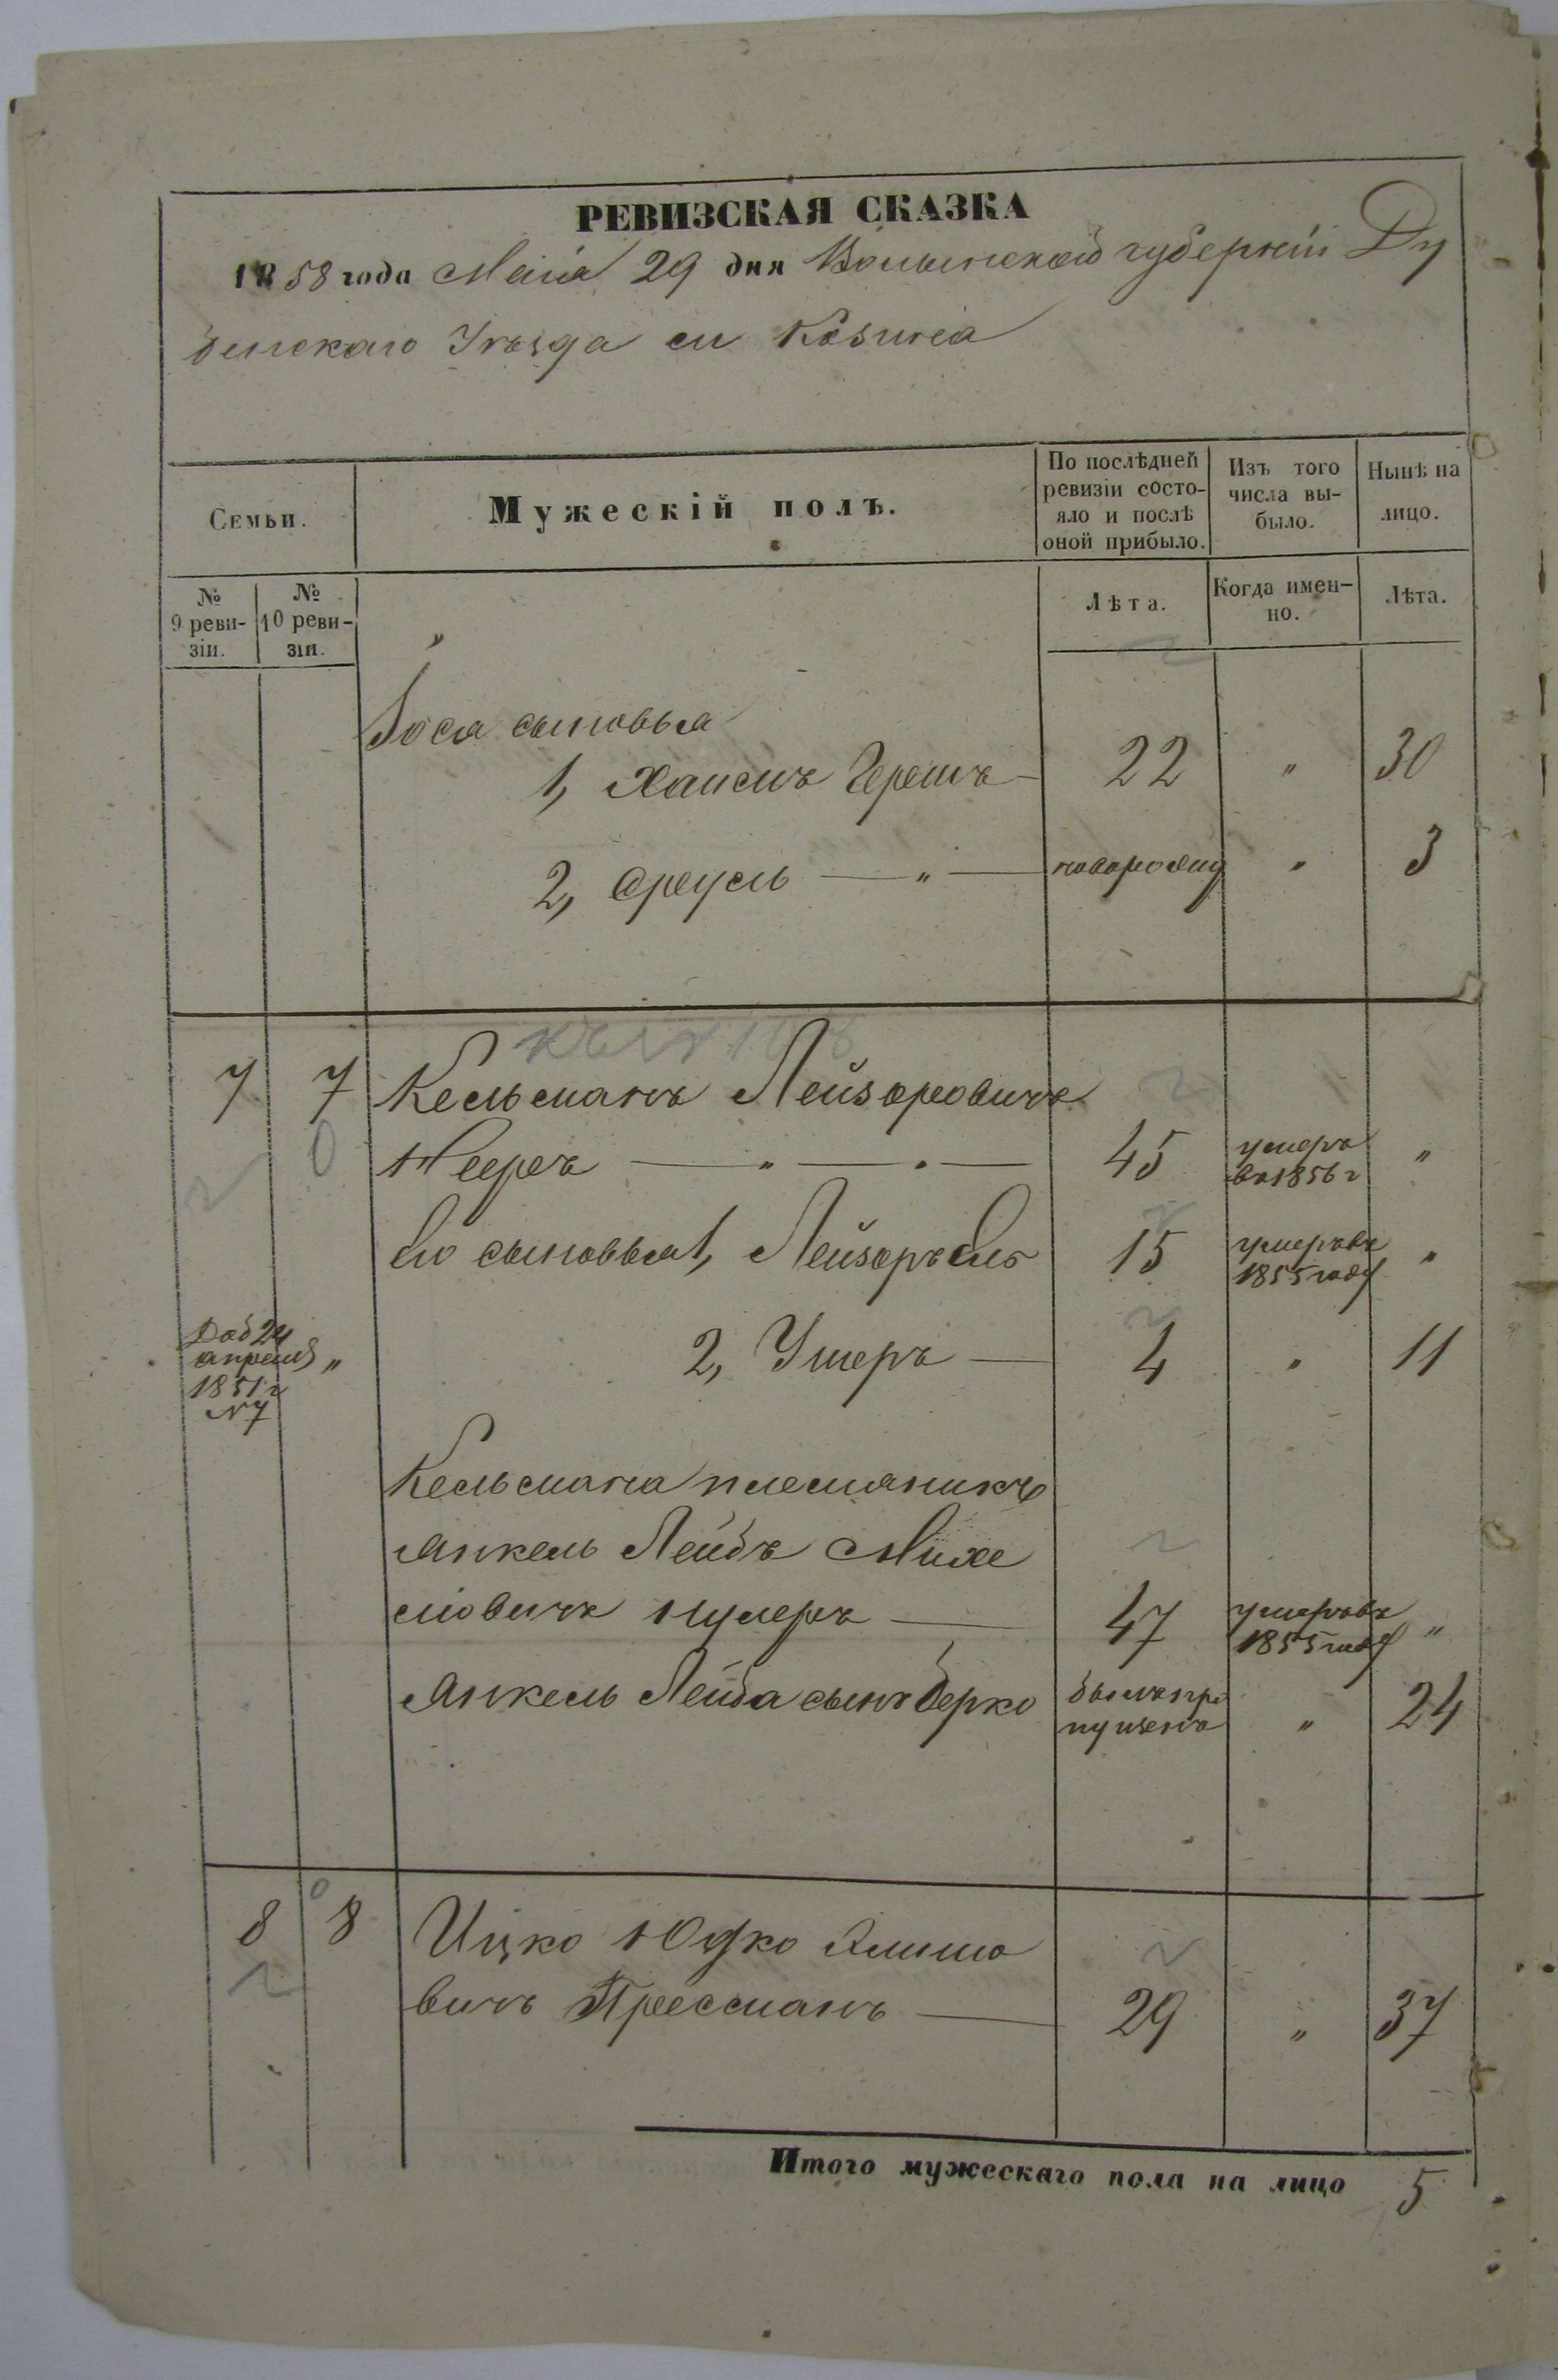 РЕВИЗСКАЯ СКАЗКА
1858 года Маія 29 дня Волынской губерніи Ду
бенскаго Уѣзда м Козина
Семьи.
Мужескій полъ.
По послѣдней ревизіи состо-
яло и послѣ оной прибыло.
Изъ того числа вы-
было.
Нынѣ на лицо.
№ 9 реви-
зіи.
№ 10 реви-
зіи.
Лѣта.
Когда имен-
но.
Лѣта.
Іося сыновья
1, Хаимъ Гершъ — 22 " 30
2, Сруль — " — новорожд " 3
7 7 Кельманъ Лейзоровичъ
— " — " — 45 умеръ
въ 1856 г "
Его сыновья 1, Лейзоръ 15 умеръ въ
1855 году "
Доб 24
апреля "
1851 г
№ 7
2, Ушеръ — 4 " 11
Кельмана племяникъ
Янкель Лейбъ Михе
левичъ — 47 умеръ въ
1855 году "
Янкель Лейба сынъ Берко былъ про
пущенъ " 24
8 8 Ицко Юдко
вичъ Прессманъ — 29 " 37
Итого мужескаго пола на лицо 5